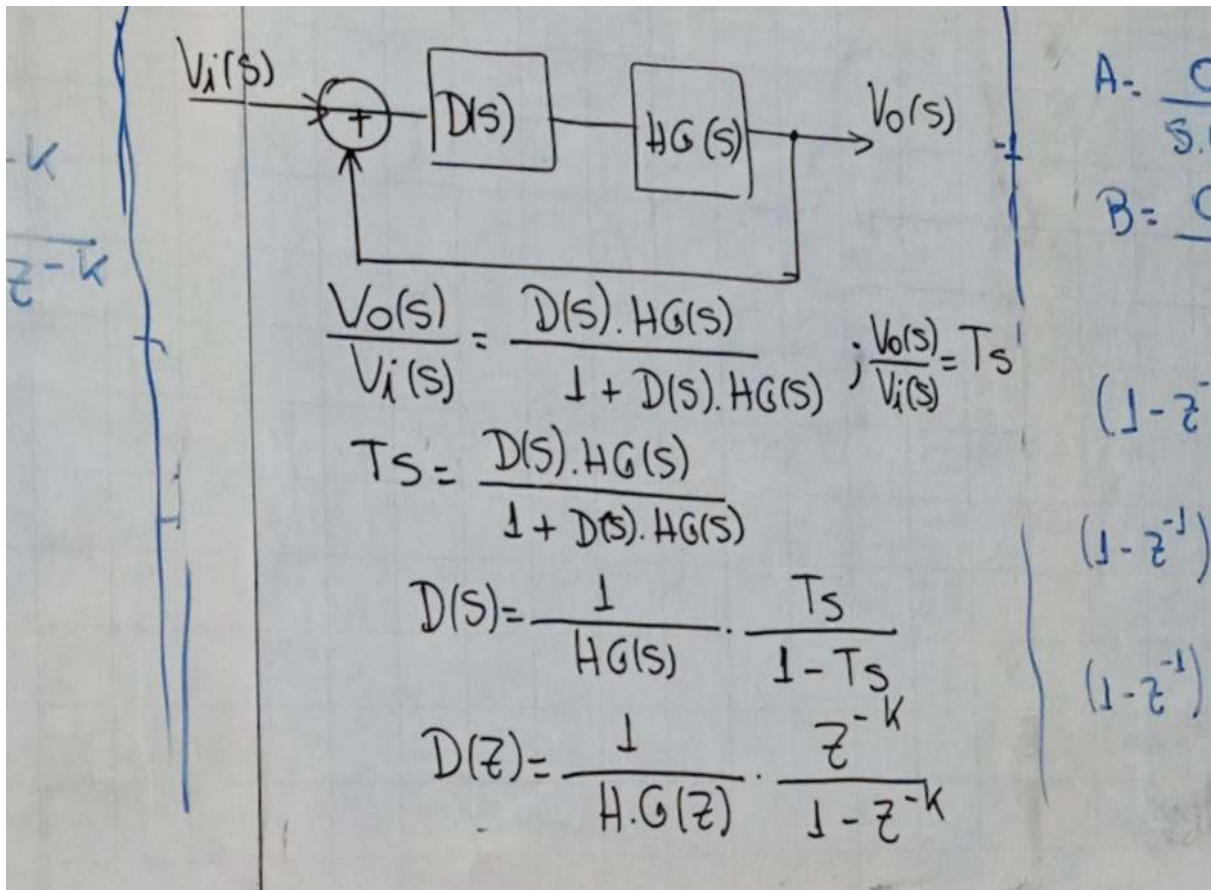 Vi(s)
+
D(s)
HG(s)
Vo(s)
Vo(s)/Vi(s) = D(s).HG(s)/1 + D(s).HG(s) ; Vo(s)/Vi(s) = Ts
Ts = D(s).HG(s)/1 + D(s).HG(s)
D(s) = 1/HG(s) . Ts/1 - Ts
D(z) = 1/H.G(z) . z^-k/1 - z^-k
-k
z - k
A=
B=
(1 - z^-
(1 - z^-1)
(1 - z^-1)